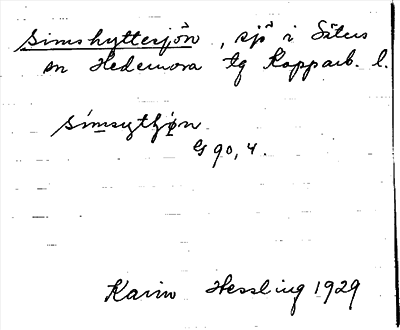 Simshyttesjön, sjö i Säters
sn Hedemora tg Kopparb. l.
simsytʃøn
G 90, 4.
Karin Hessling 1929